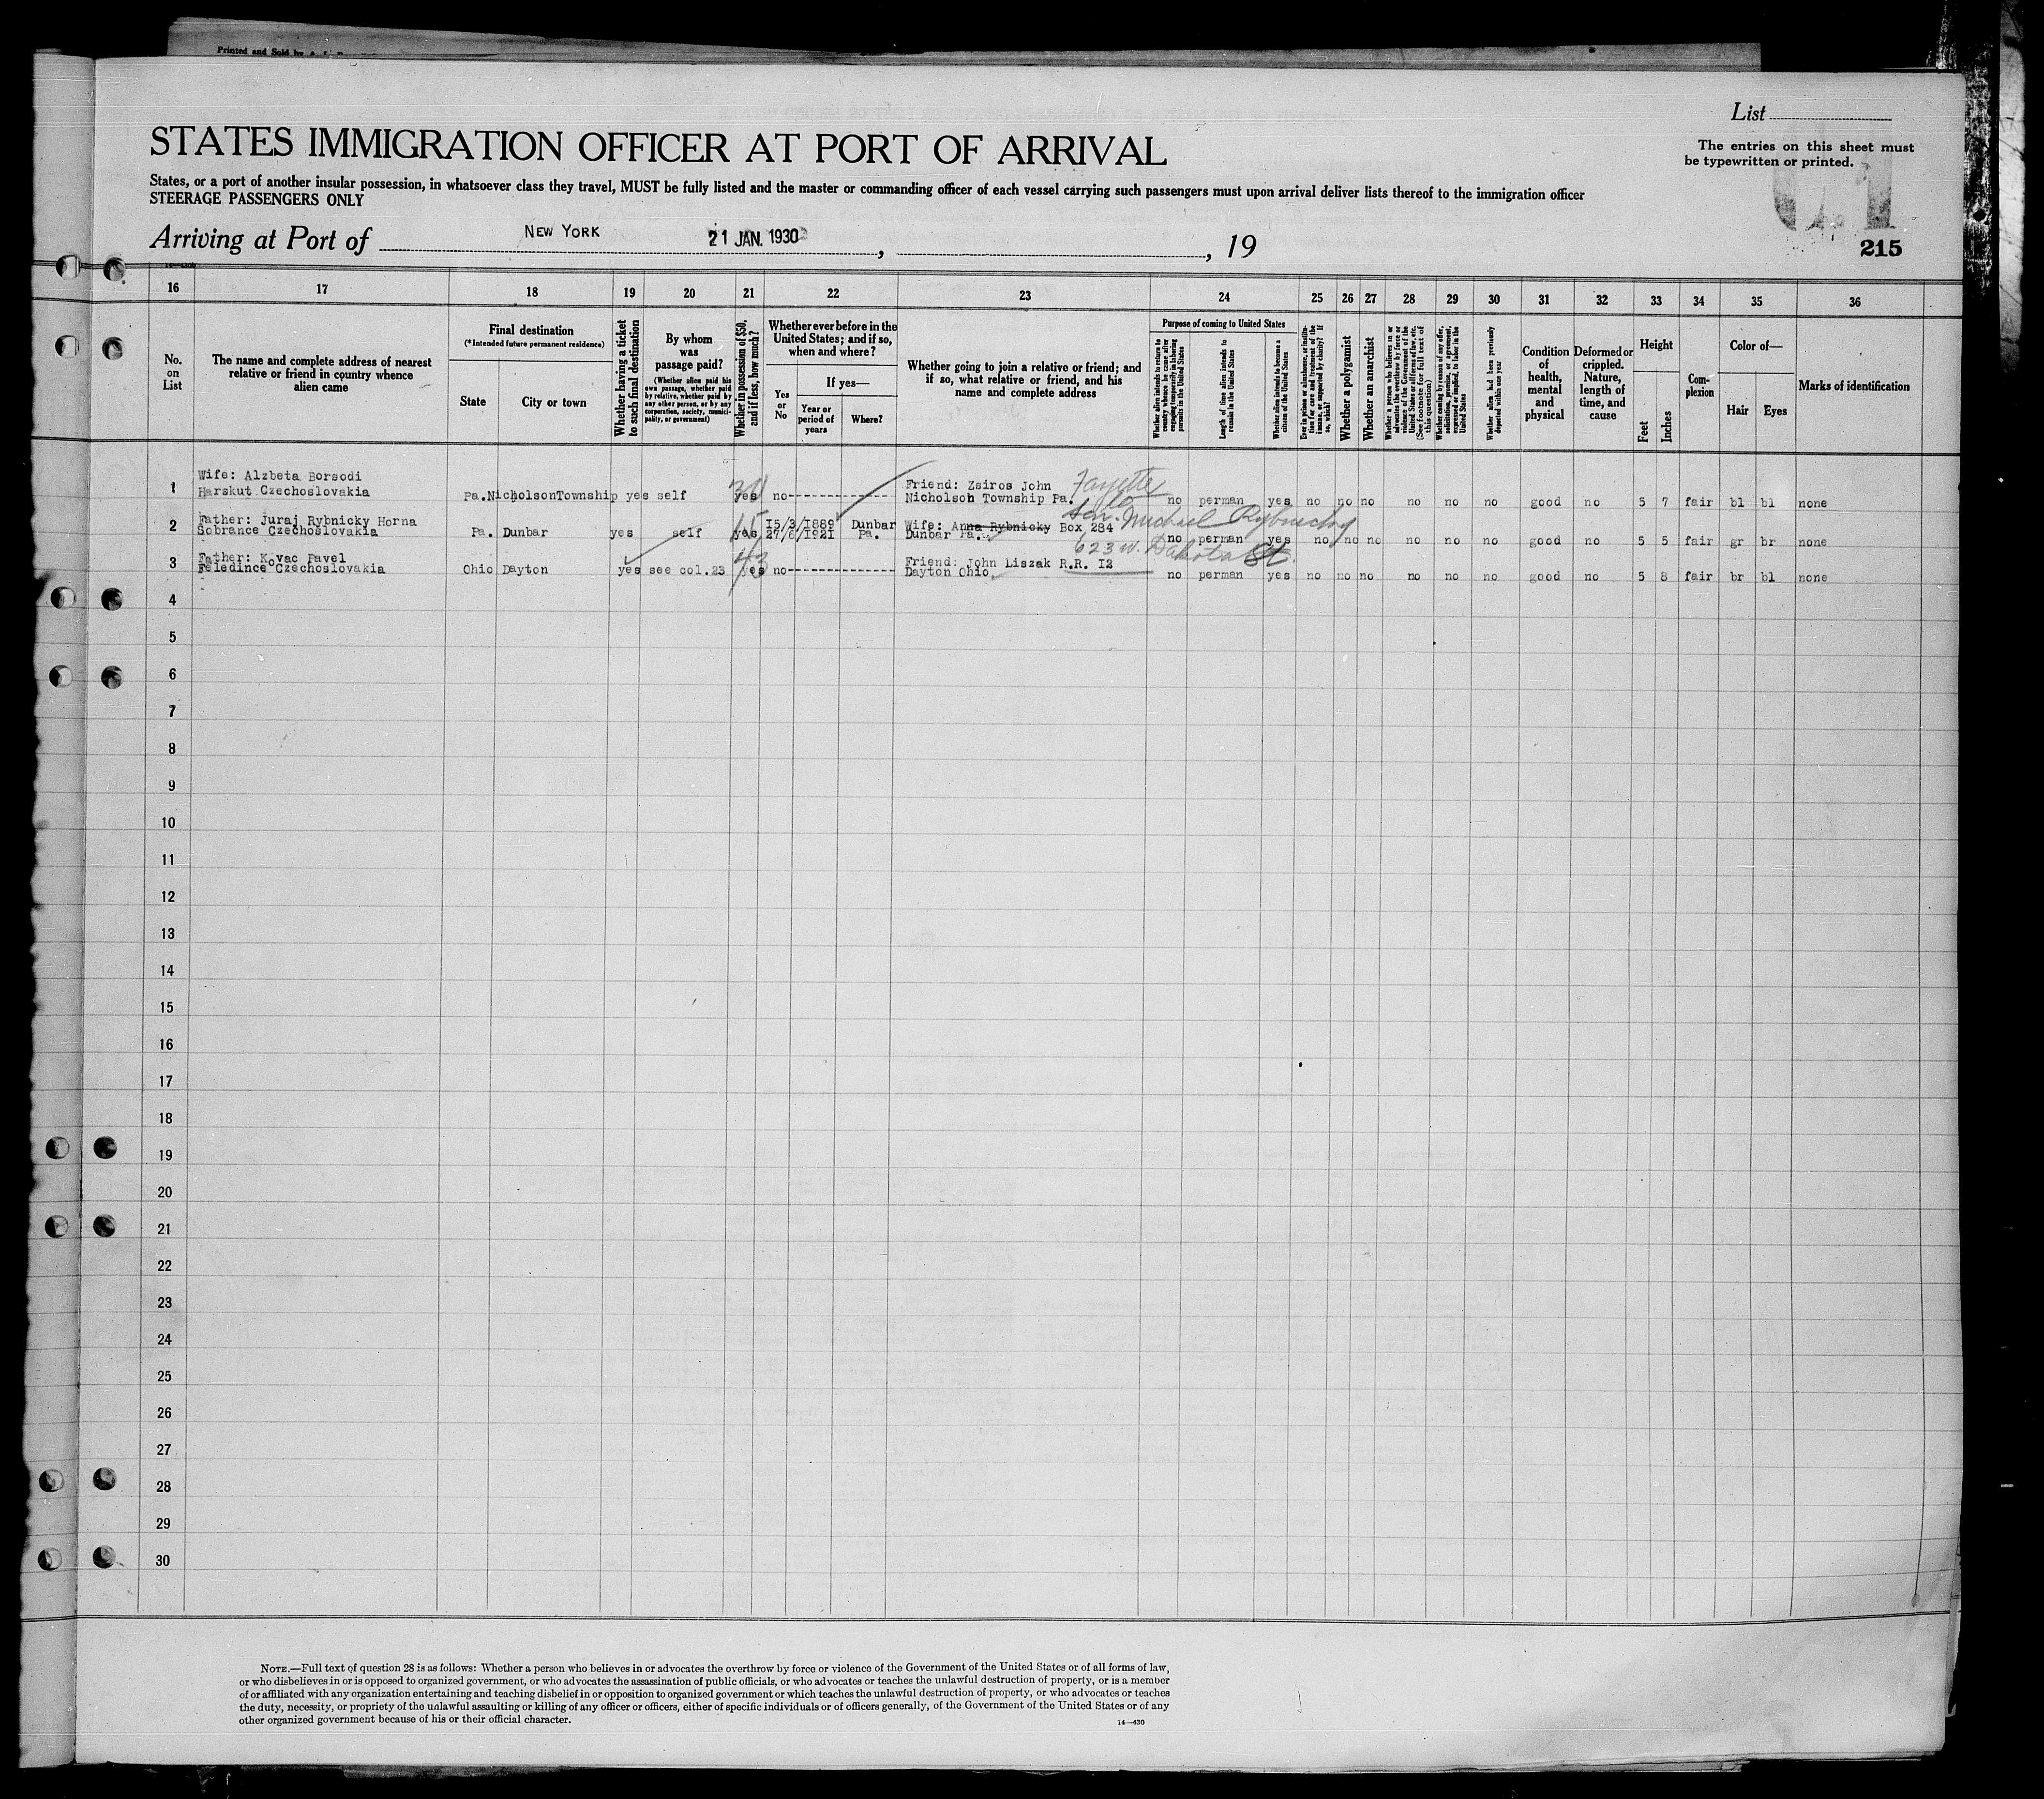 Printed and Sold by
List
STATES IMMIGRATION OFFICER AT PORT OF ARRIVAL
The entries on this sheet must
be typewritten or printed.
States, or a port of another insular possession, in whatsoever class they travel, MUST be fully listed and the master or commanding officer of each vessel carrying such passengers must upon arrival deliver lists thereof to the immigration officer
STEERAGE PASSENGERS ONLY
Arriving at Port of NEW YORK 21 JAN. 1930, , 19
215
16 17 18 19 20 21 22 23 24 25 26 27 28 29 30 31 32 33 34 35 36
No. on List
The name and complete address of nearest relative or friend in country whence alien came
Final destination
(*Intended future permanent residence)
State
City or town
Whether having a ticket to such final destination
By whom was passage paid?
(Whether alien paid his own passage, whether paid by relative, whether paid by any other person, or by any corporation, society, municipality, or government)
Whether in possession of $50, and if less, how much?
Whether ever before in the United States; and if so, when and where?
Yes or No
If yes—
Year or period of years
Where?
Whether going to join a relative or friend; and if so, what relative or friend, and his name and complete address
Purpose of coming to United States
Whether alien intends to return to country whence he came after engaging temporarily in laboring pursuits in the United States
Length of time alien intends to remain in the United States
Whether alien intends to become a citizen of the United States
Ever in prison or almshouse, or institution for care and treatment of the insane, or supported by charity? If so, which?
Whether a polygamist
Whether an anarchist
Whether a person who believes in or advocates the overthrow by force or violence of the Government of the United States or all forms of law, etc. (See footnote for full text of this question)
Whether coming by reason of any offer, solicitation, promise, or agreement, expressed or implied, to labor in the United States
Whether alien had been previously deported within one year
Condition of health, mental and physical
Deformed or crippled. Nature, length of time, and cause
Height
Feet
Inches
Complexion
Color of—
Hair
Eyes
Marks of identification
Wife: Alzbeta Borsodi
Friend: Zsiros John Fayette
1 Harskut Czechoslovakia Pa. Nicholson Township yes self yes no Nicholson Township Pa. no perman yes no no no no no no good no 5 7 fair bl bl none
Father: Juraj Rybnicky Horna 15/3/1889 Dunbar Wife: Anna Rybnicky Box 284 son. Michael Rybnicky
2 Sobrance Czechoslovakia Pa. Dunbar yes self 15 yes 27/6/1921 Pa. Dunbar Pa. no perman yes no no no no no no good no 5 5 fair gr br none
623 W. Dakota St.
Father: Kovac Pavel Friend: John Liszak R.R. 12
3 Feledince Czechoslovakia Ohio Dayton yes see col.23 yes no Dayton Ohio no perman yes no no no no no no good no 5 8 fair br bl none
4
5
6
7
8
9
10
11
12
13
14
15
16
17
18
19
20
21
22
23
24
25
26
27
28
29
30
NOTE.—Full text of question 28 is as follows: Whether a person who believes in or advocates the overthrow by force or violence of the Government of the United States or of all forms of law,
or who disbelieves in or is opposed to organized government, or who advocates the assassination of public officials, or who advocates or teaches the unlawful destruction of property, or is a member
of or affiliated with any organization entertaining and teaching disbelief in or opposition to organized government or which teaches the unlawful destruction of property, or who advocates or teaches
the duty, necessity, or propriety of the unlawful assaulting or killing of any officer or officers, either of specific individuals or of officers generally, of the Government of the United States or of any
other organized government because of his or their official character.
14—430